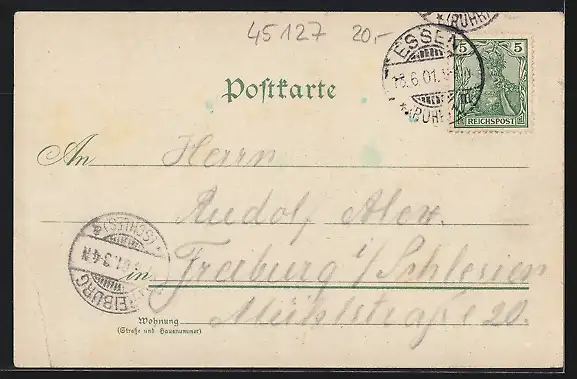 45127 20,-
*(RUHR)
ESSEN
5 5
16.6.01.
*(RUHR)
REICHSPOST
Postkarte
An Herrn
Rudolf Alex.
(SCHLES)
01.3-4N
FREIBURG
in Freiburg i/Schlesien
Mühlstraße 20.
Wohnung
(Straße und Hausnummer)